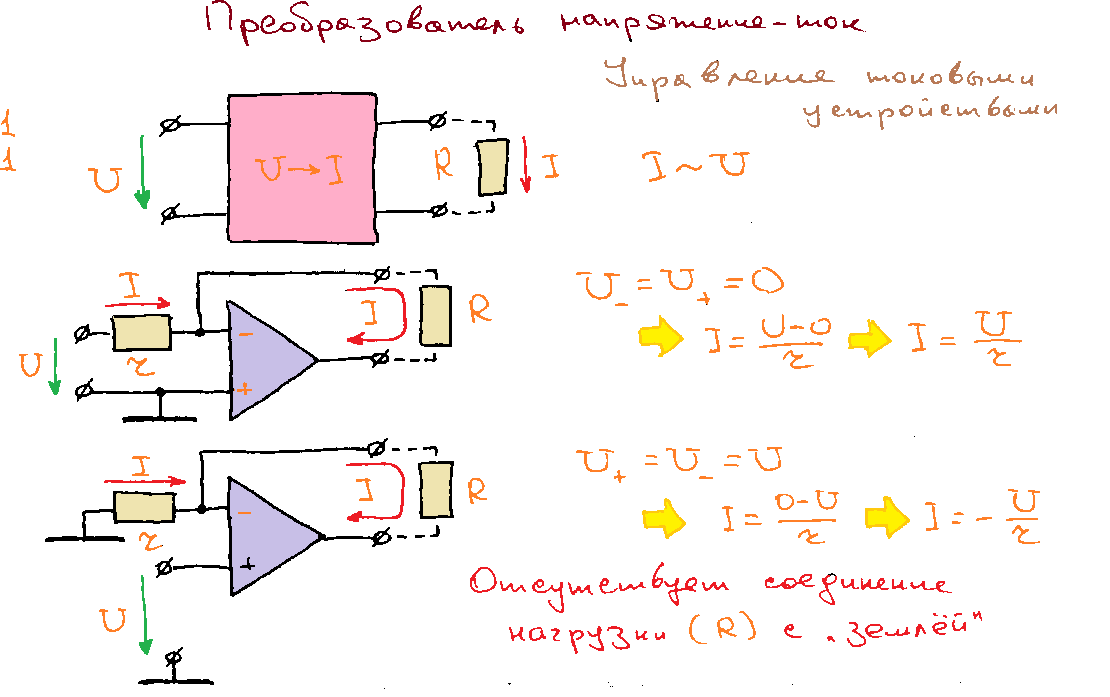 Преобразователь напряжение-ток
Управление токовыми
устройствами
1
1
U
U→I
R
I
I ~ U
I
r
U
-
+
I
R
U₋ = U₊ = 0
I = (U-0)/r
I = U/r
I
r
U
-
+
I
R
U₊ = U₋ = U
I = (0-U)/r
I = - U/r
Отсутствует соединение
нагрузки (R) с "землёй"